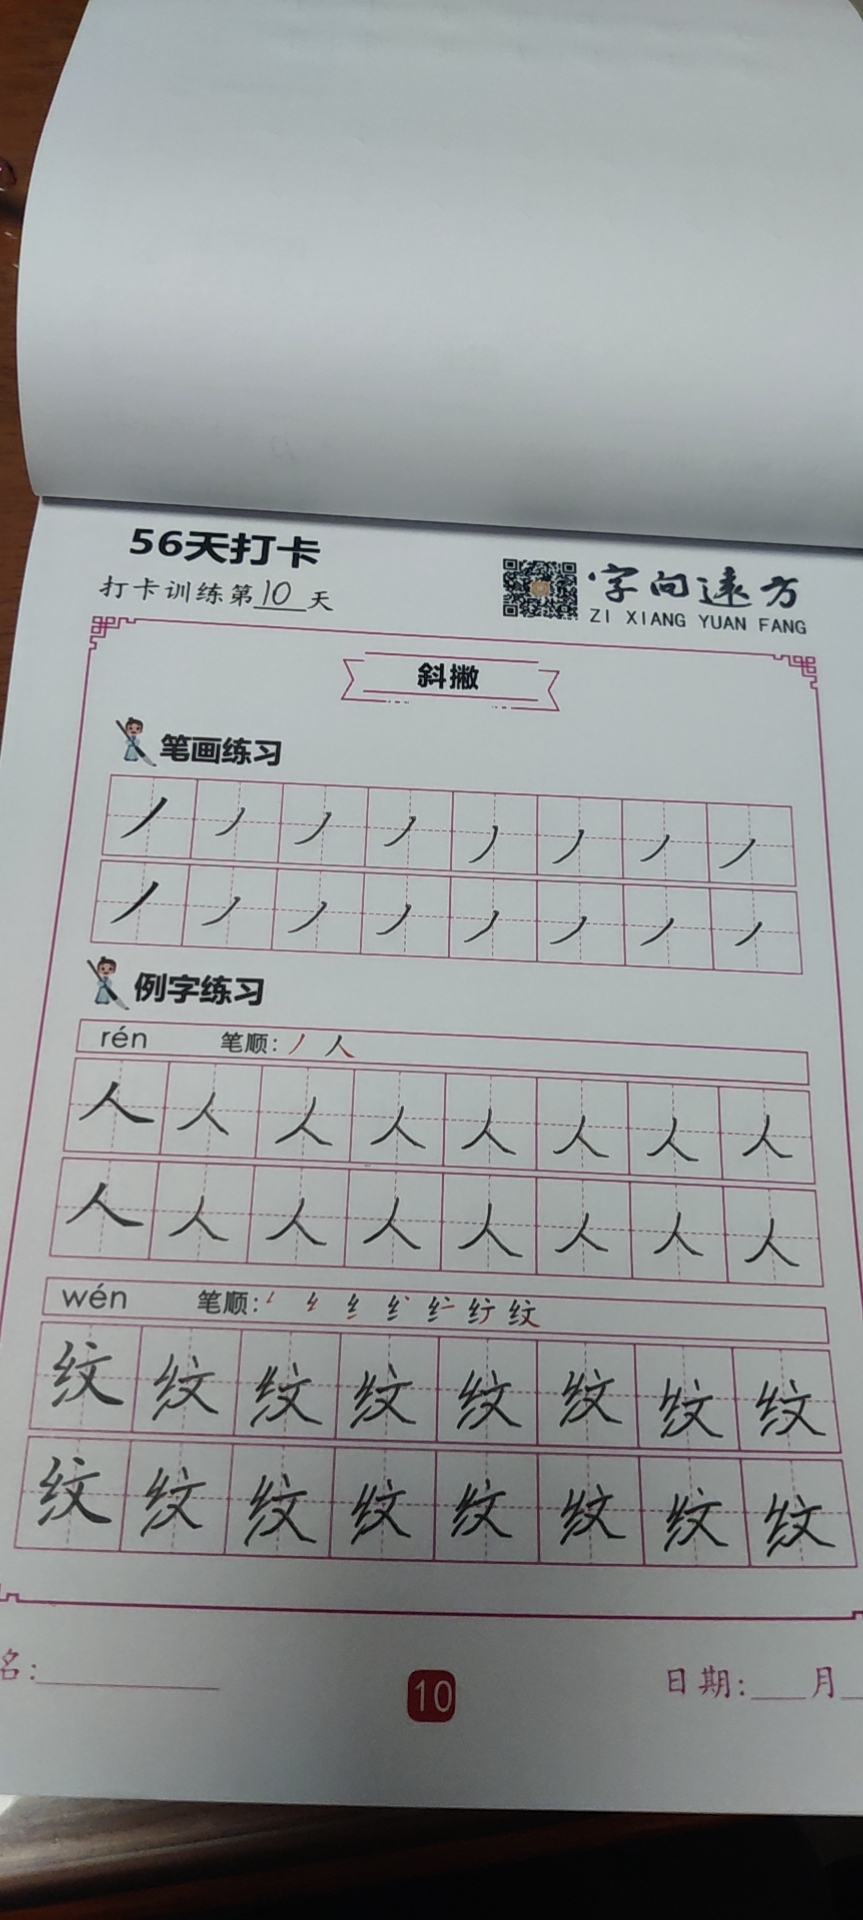 56天打卡
打卡训练第10天
字向远方
ZI XIANG YUAN FANG
斜撇
笔画练习
丿丿丿丿丿丿丿丿
丿丿丿丿丿丿丿丿
例字练习
rén 笔顺: 丿 人
人人人人人人人人
人人人人人人人人
wén 笔顺:
纹纹纹纹纹纹纹纹
纹纹纹纹纹纹纹纹
名:
10
日期: 月